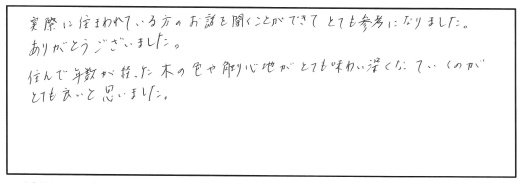 実際に住まわれている方のお話を聞くことができてとても参考になりました。
ありがとうございました。
住んで年数が経った木の色や触り心地がとても味わい深くなっていくのが
とても良いと思いました。